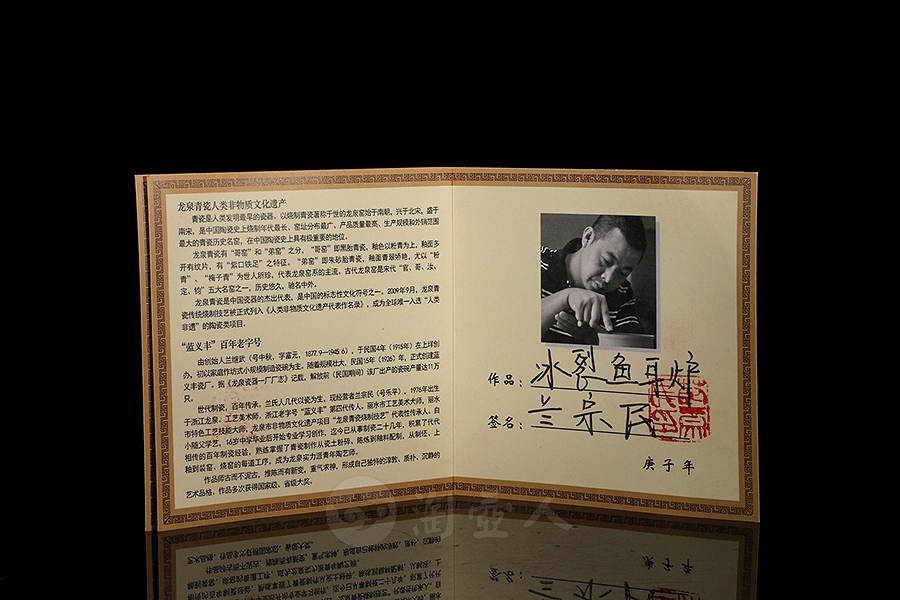 龙泉青瓷人类非物质文化遗产
青瓷是人类发明最早的瓷器，以烧制青瓷著称于世的龙泉窑始于南朝，兴于北宋，盛于
南宋，是中国陶瓷史上烧制年代最长、窑址分布最广、产品质量最高、生产规模和外销范围
最大的青瓷历史名窑，在中国陶瓷史上具有极重要的地位。
龙泉青瓷有“哥窑”和“弟窑”之分，“哥窑”即黑胎青瓷，釉色以粉青为上，釉面多
开有纹片，有“紫口铁足”之特征。“弟窑”即朱砂胎青瓷，釉面青翠娇艳，尤以“粉
青”、“梅子青”为世人所珍，代表龙泉窑系的主流。古代龙泉窑是宋代“官、哥、汝、
定、钧”五大名窑之一，历史悠久，驰名中外。
龙泉青瓷是中国瓷器的杰出代表，是中国的标志性文化符号之一，2009年9月，龙泉青
瓷传统烧制技艺被正式列入《人类非物质文化遗产代表作名录》，成为全球唯一入选“人类
非遗”的陶瓷类项目。
“蓝义丰”百年老字号
由创始人兰继武（号中秋，字富元，1877.9—1945.6），于民国4年（1915年）在上垟创
办，初以家庭作坊式小规模制造瓷碗为主。随着规模壮大，民国15年（1926）年，正式创建蓝
义丰瓷厂。据《龙泉瓷器一厂厂志》记载，解放前（民国期间）该厂出产的瓷碗产量达11万
只。
世代制瓷，百年传承。兰氏人几代以瓷为生，现经营者兰宗民（号乐平），1976年出生
于浙江龙泉，工艺美术师，浙江老字号“蓝义丰”第四代传人，丽水市工艺美术师，丽水
市特色工艺技能大师，龙泉市非物质文化遗产项目“龙泉青瓷烧制技艺”代表性传承人。自
小随父学艺，16岁中学毕业后开始专业学习创作，迄今已从事制瓷二十几年，积累了代代
相传的百年制瓷经验，熟练掌握了青瓷制作从瓷土粉碎、陈练到釉料配制，从制坯、上
釉到装窑、烧窑的每道工序，成为龙泉实力派青年陶艺师。
作品师古而不泥古，推陈而有新变，重气求神，形成自己独特的淳敦、质朴、沉静的
艺术品格，作品多次获得国家级、省级大奖。
作品：冰裂鱼耳炉
签名：兰宗民
庚子年